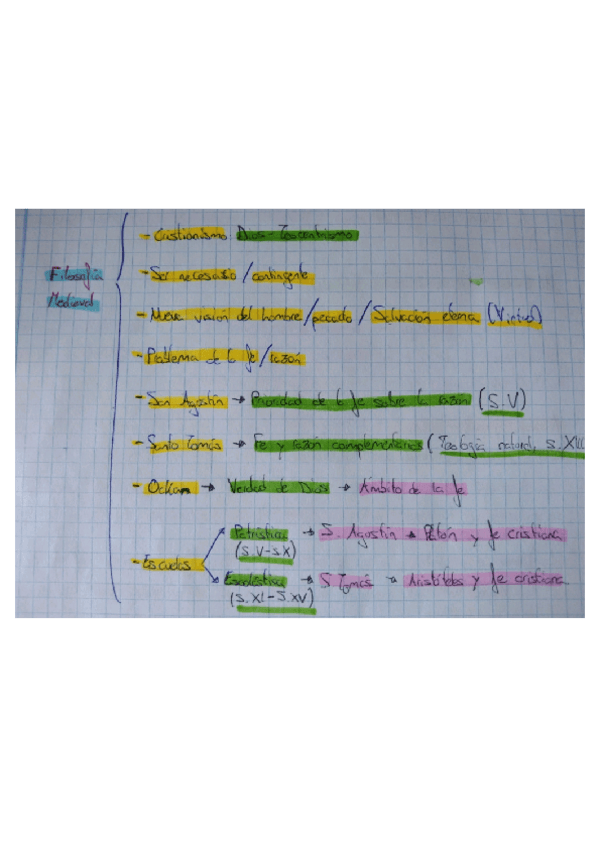 Filosofía
Medieval
- Cristianismo Dios Teocentrismo
- Ser necesario / contingente
- Nueva visión del hombre / pecado / Salvación eterna (Virtud)
- Problema de la fe / razón
- San Agustín → Prioridad de la fe sobre la razón (S.V)
- Santo Tomás → Fe y razón complementarios (Teología natural, S.XIII
- Ockam → Verdad de Dios → Ámbito de la fe
- Escuelas
Patrística → S. Agustín → Platón y fe cristiana
(S.V-S.X)
Escolástica → S Tomás → Aristóteles y fe cristiana
(S.XI-S.XV)